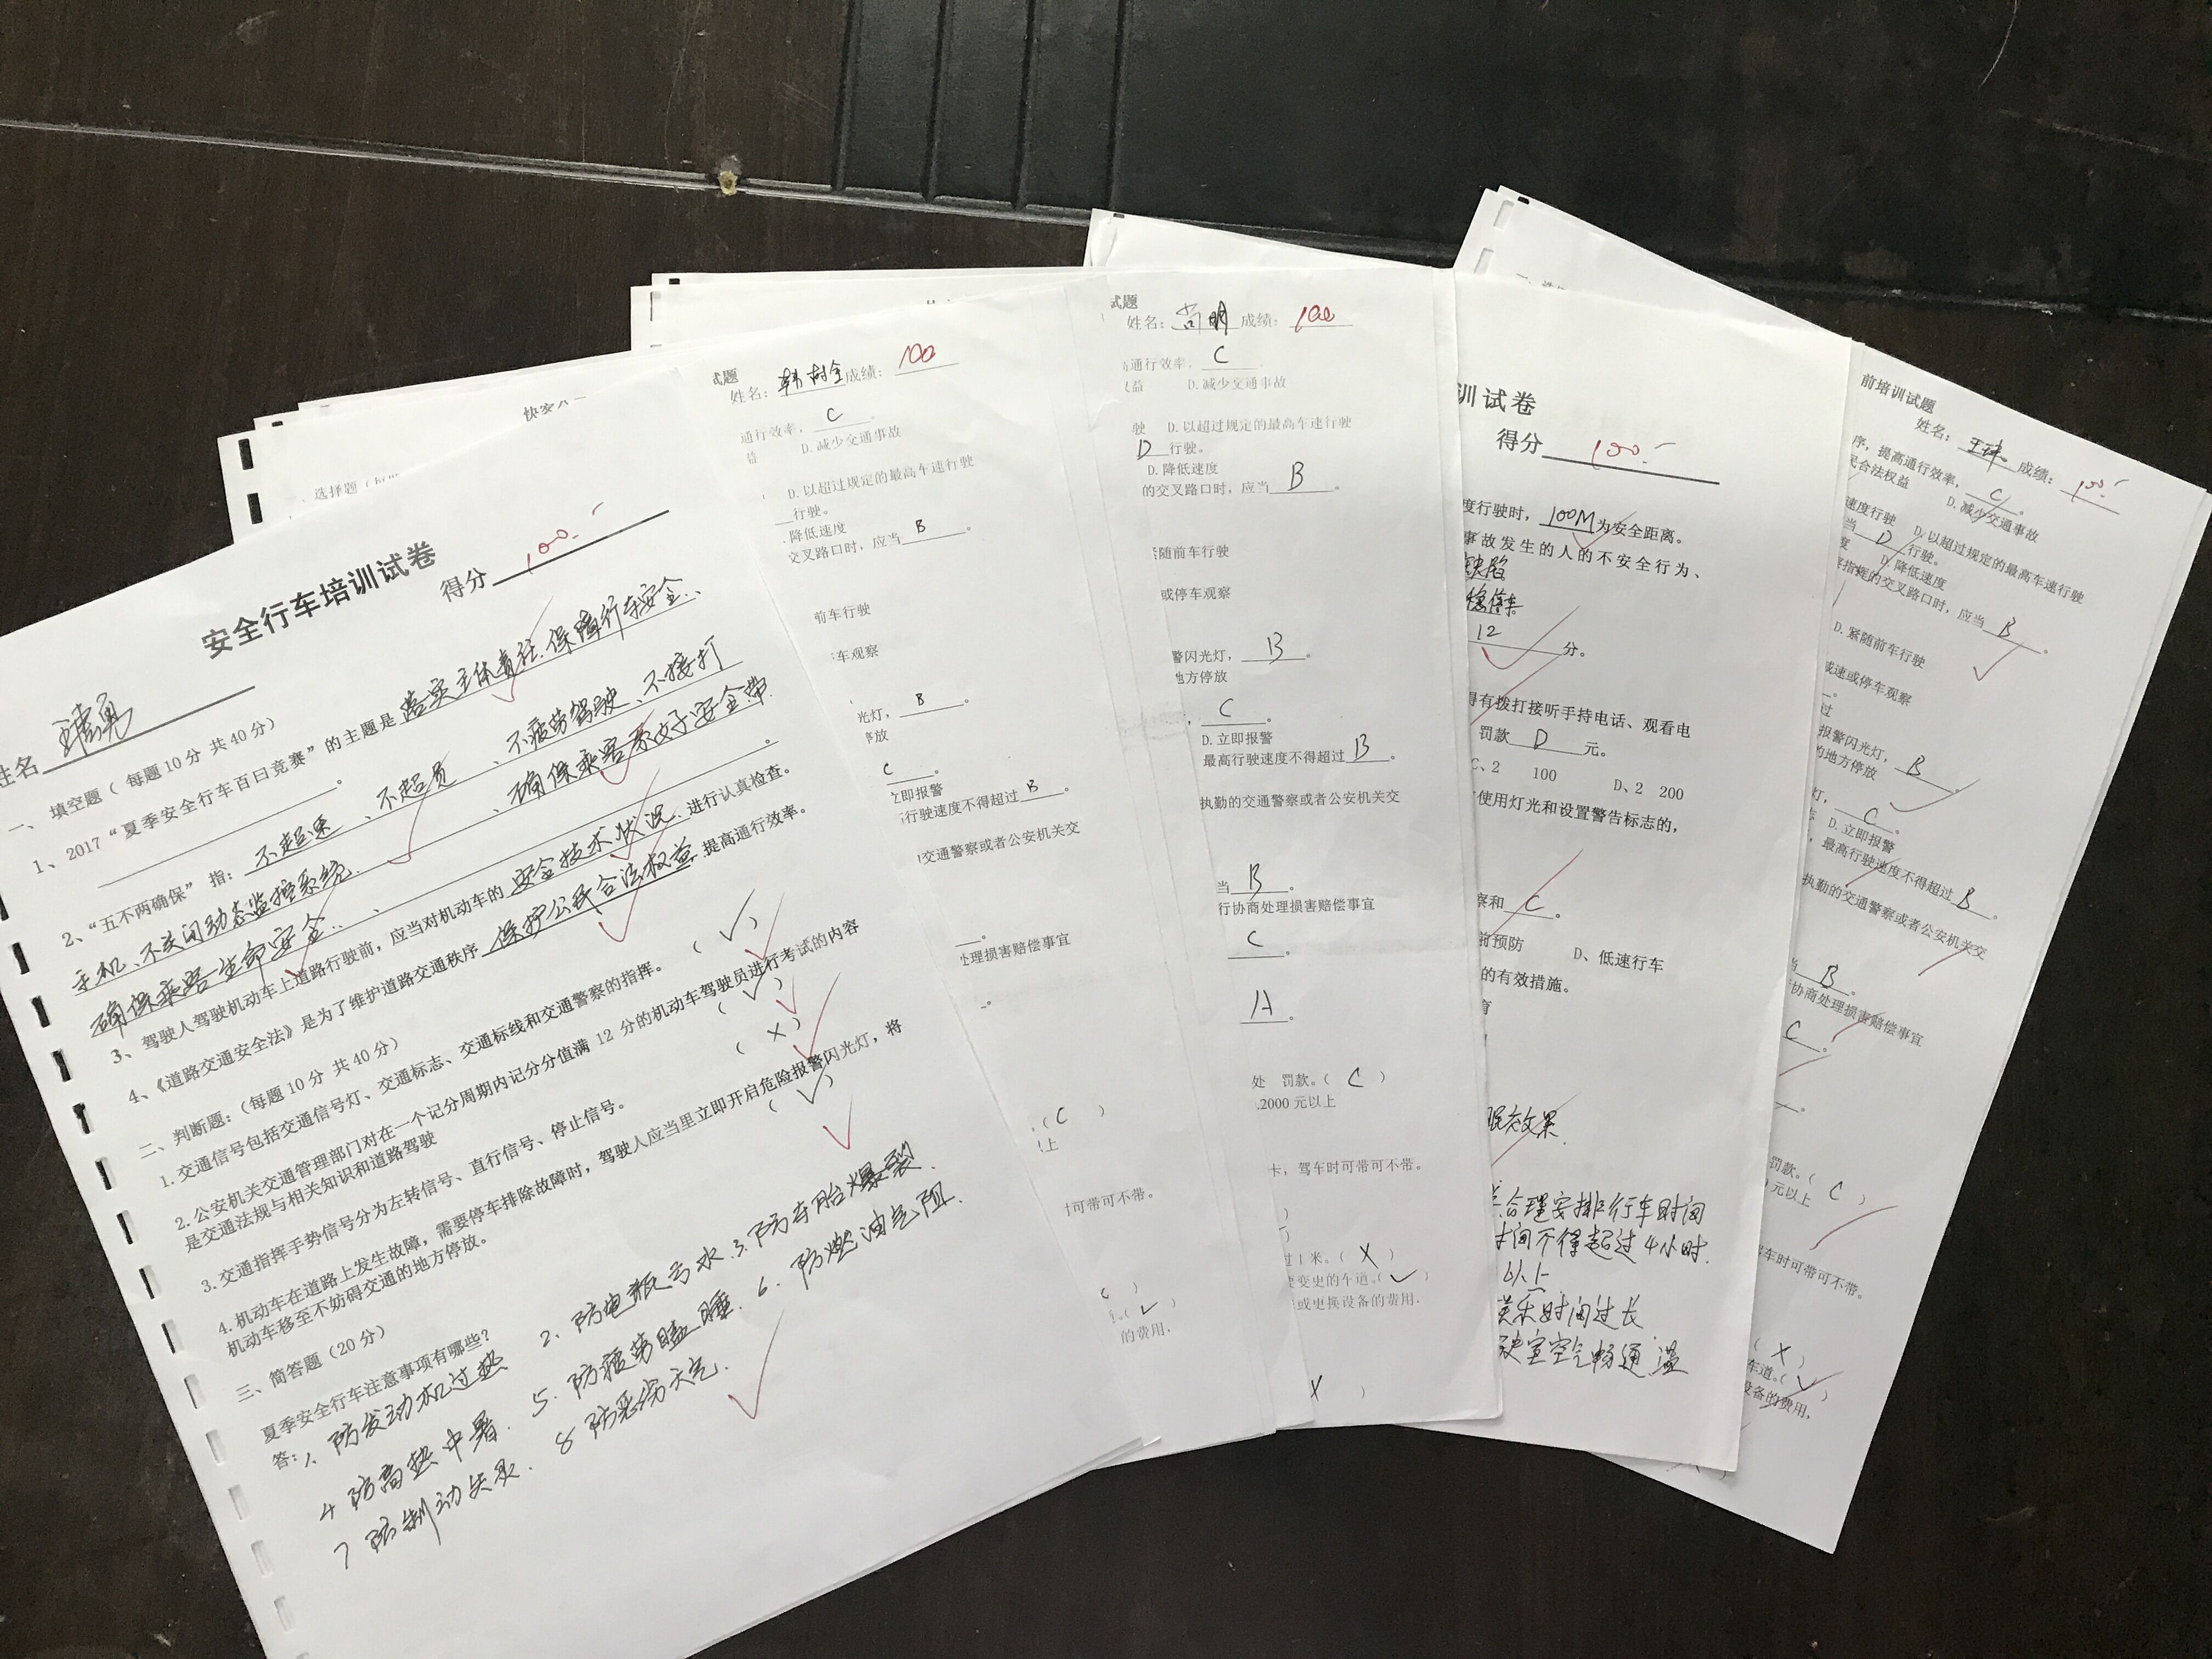 安全行车培训试卷
姓名
得分 100.
一、 填空题（ 每题10分 共40分）
1、2017“夏季安全行车百日竞赛”的主题是 落实主体责任.保障行车安全.
。
2、“五不两确保” 指： 不超速 、不超员 、不疲劳驾驶、不接打
手机、不关闭动态监控系统、确保乘客系好安全带
确保乘客生命安全. 、 。
3、 驾驶人驾驶机动车上道路行驶前，应当对机动车的 安全技术状况 进行认真检查。
4、《道路交通安全法》是为了维护道路交通秩序 保护公民合法权益 提高通行效率。
二、判断题：（每题10分 共40分）
1.交通信号包括交通信号灯、交通标志、交通标线和交通警察的指挥。 （√）
2.公安机关交通管理部门对在一个记分周期内记分分值满 12 分的机动车驾驶员进行考试的内容
是交通法规与相关知识和道路驾驶 （√）
3.交通指挥手势信号分为左转信号、直行信号、停止信号。 （×）
4.机动车在道路上发生故障，需要停车排除故障时，驾驶人应当里立即开启危险报警闪光灯，将
机动车移至不妨碍交通的地方停放。 （√）
三、简答题（20分）
夏季安全行车注意事项有哪些？
答：1、防发动机过热 2、防电瓶亏水.3.防车胎爆裂.
4 防高热中暑. 5.防疲劳瞌睡. 6.防燃油气阻.
7 防制动失灵. 8 防恶劣天气.
快安八一
一、选择题（
试题
姓名：韩树全成绩： 100
通行效率， C 。
益 D.减少交通事故
D.以超过规定的最高车速行驶
行驶。
降低速度
交叉路口时，应当 B 。
前车行驶
车观察
光灯， B 。
停放
C 。
立即报警
行驶速度不得超过 B 。
交通警察或者公安机关交
。
处理损害赔偿事宜
。
（C ）
上
可带可不带。
C ）
（√）
的费用.
试题
姓名：尚明 成绩： 100
通行效率， C
益 D.减少交通事故
驶 D.以超过规定的最高车速行驶
D 行驶。
D.降低速度
的交叉路口时，应当 B 。
紧随前车行驶
或停车观察
警闪光灯， B 。
地方停放
， C 。
D.立即报警
最高行驶速度不得超过 B 。
执勤的交通警察或者公安机关交
当 B 。
行协商处理损害赔偿事宜
C 。
A 。
处 罚款。（ C ）
.2000元以上
卡，驾车时可带可不带。
）
过1米。（ × ）
变更的车道。（√）
或更换设备的费用.
× ）
训试卷
得分 100.
度行驶时， 100M 为安全距离。
事故发生的人的不安全行为、
缺陷
12 分。
得有拨打接听手持电话、观看电
罚款 D 元。
C、2 100 D、2 200
使用灯光和设置警告标志的，
察和 C 。
前预防 D、低速行车
的有效措施。
育
眠效果.
合理安排行车时间
时间不得超过4小时.
以上
娱乐时间过长
空气畅通 温
前培训试题
姓名：王球 成绩： 100.
序，提高通行效率， C 。
民合法权益 D.减少交通事故
速度行驶 D.以超过规定的最高车速行驶
当 D 行驶。
度 D.降低速度
指挥的交叉路口时，应当 B 。
D.紧随前车行驶
减速或停车观察
。
过
报警闪光灯， B 。
的地方停放
灯， C 。
D.立即报警
，最高行驶速度不得超过 B 。
执勤的交通警察或者公安机关交
当 B 。
协商处理损害赔偿事宜
C 。
。
罚款。（ C ）
元以上
驾车时可带可不带。
（ × ）
车道。（√）
设备的费用，